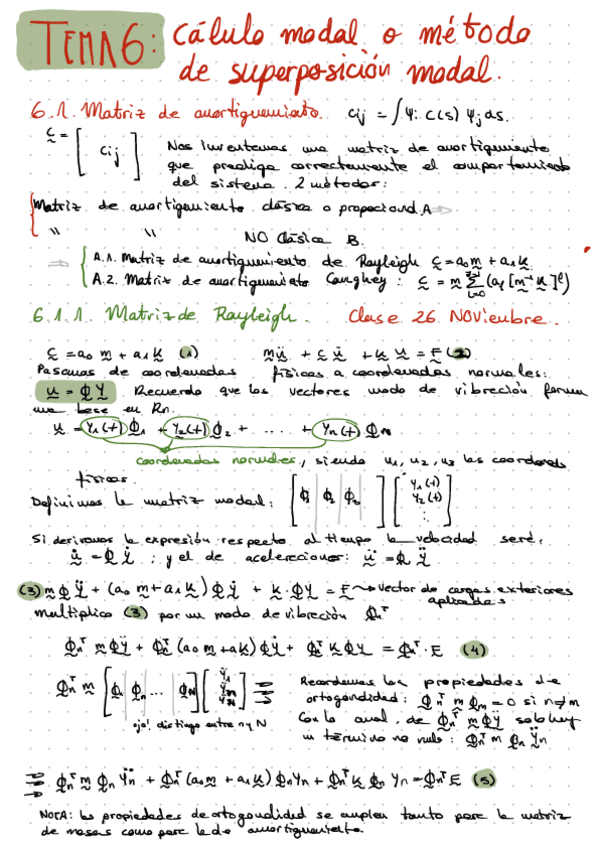 TEMA 6: Cálculo modal o método
de superposición modal.
6.1. Matriz de amortiguamiento. cij = ∫ψi c(s) ψj ds.
c = [ cij ] Nos inventamos una matriz de amortiguamiento
que prediga correctamente el comportamiento
del sistema. 2 métodos:
Matriz de amortiguamiento clásica o proporcional A ⇒
" " NO Clásica B.
⇒ A.1. Matriz de amortiguamiento de Rayleigh c = a0 m + a1 k
A.2. Matriz de amortiguamiento Caughey : c = m Σ (al [m⁻¹ k]^l)
6.1.1. Matriz de Rayleigh. Clase 26 Noviembre.
c = a0 m + a1 k (1) mü + c u̇ + k u = F (2)
Pasamos de coordenadas físicas a coordenadas normales:
u = Φ Y Recuerdo que los vectores modo de vibración forman
una base en Rn.
u = Y1(t) Φ1 + Y2(t) Φ2 + .... + Yn(t) ΦN
coordenadas normales, siendo u1, u2, u3 las coordenadas
físicas.
Definimos la matriz modal: [Φ1 Φ2 Φ3] [Y1(t) Y2(t) ⋮]
Si derivamos la expresión respecto al tiempo la velocidad será:
u̇ = Φ Ẏ ; y el de aceleraciones: ü = Φ Ÿ
(3) m Φ Ÿ + (a0 m + a1 k) Φ Ẏ + k · Φ Y = F → Vector de cargas exteriores
aplicadas
multiplico (3) por un modo de vibración Φnᵀ
Φnᵀ m Φ Ÿ + Φnᵀ (a0 m + a1 k) Φ Ẏ + Φnᵀ k Φ Y = Φnᵀ · F (4)
Φnᵀ m [Φ1 Φn ... ΦN] [Ÿ1 ⋮ ŸN] ⇒ Recordemos las propiedades de
ortogonalidad: Φnᵀ m Φm = 0 si n≠m
ojo! distingo entre n y N Con lo cual, de Φnᵀ m Φ Ÿ solo hay
un término no nulo: Φnᵀ m Φn Ÿn
⇒ Φnᵀ m Φn Ÿn + Φnᵀ (a0 m + a1 k) Φn Ẏn + Φnᵀ k Φn Yn = Φnᵀ F (5)
NOTA: las propiedades de ortogonalidad se cumplen tanto para la matriz
de masas como para la de amortiguamiento.